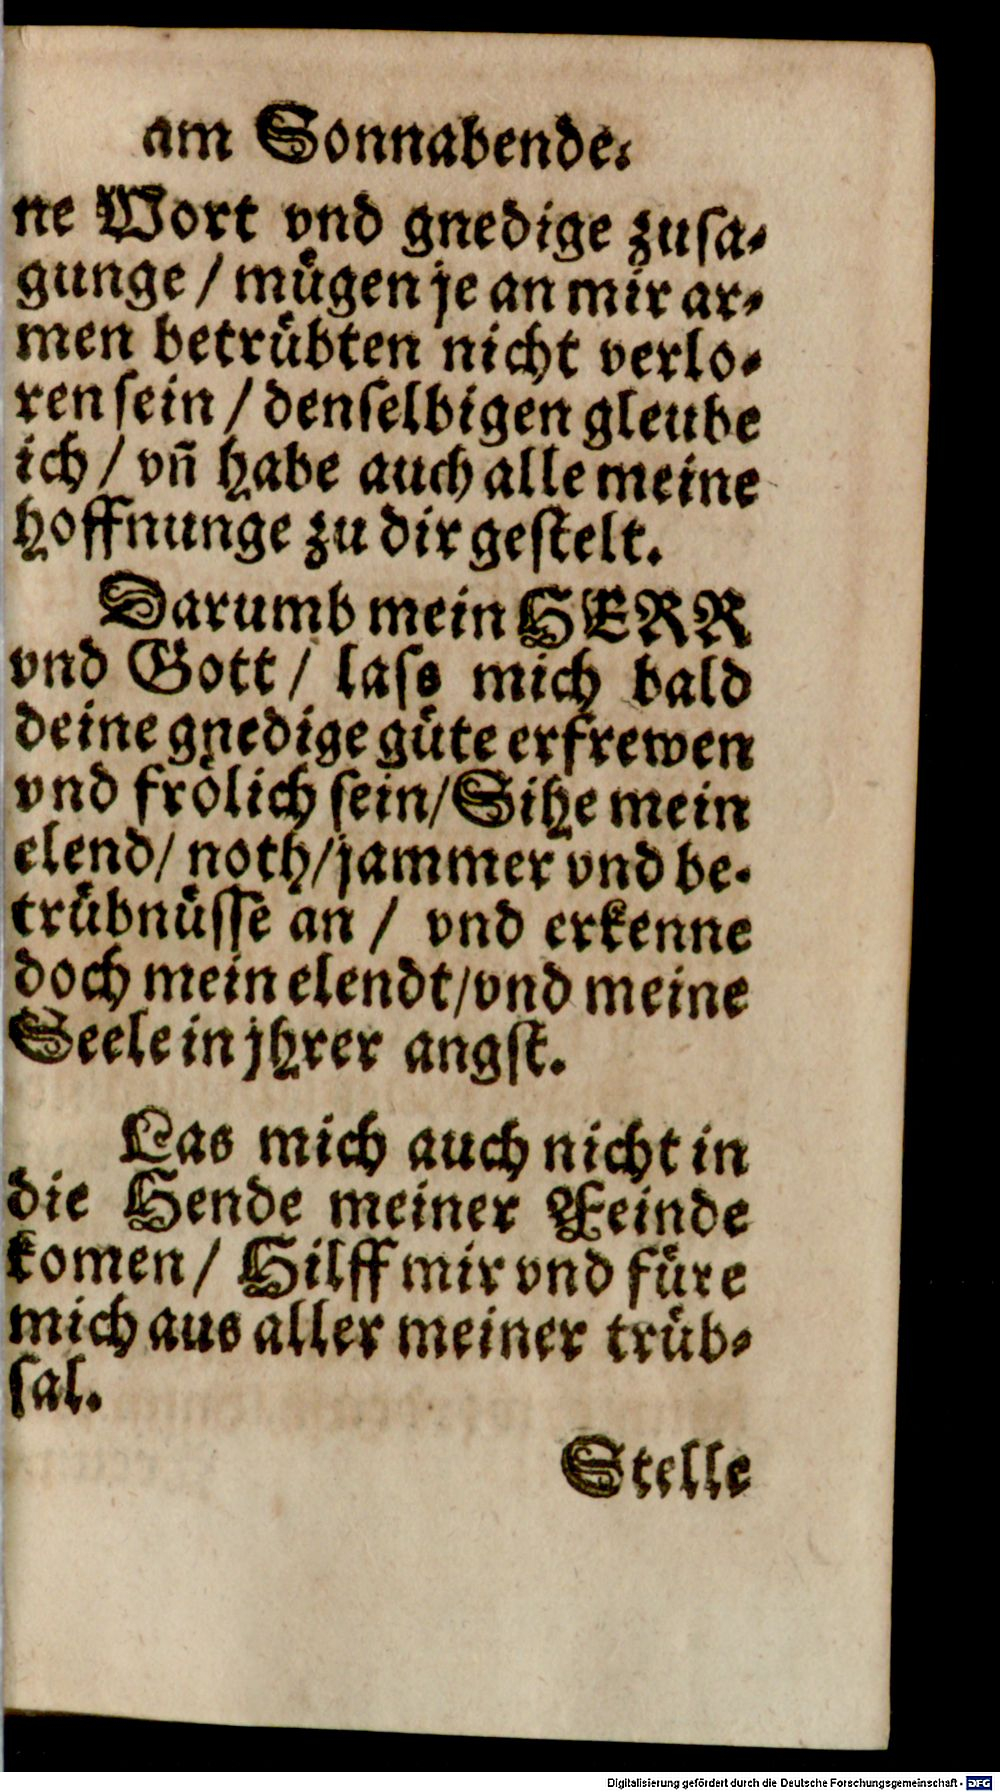 am Sonnabende.
ne Wort vnd gnedige zusa-
gunge / mügen je an mir ar-
men betrübten nicht verlo-
ren sein / denselbigen gleube
ich / vñ habe auch alle meine
hoffnunge zu dir gestelt.
Darumb mein HERR
vnd Gott / lass mich bald
deine gnedige güte erfrewen
vnd frölich sein / Sihe mein
elend / noth / jammer vnd be-
trübnüsse an / vnd erkenne
doch mein elendt / vnd meine
Seele in jhrer angst.
Las mich auch nicht in
die Hende meiner Feinde
komen / Hilff mir vnd füre
mich aus aller meiner trüb-
sal.
Stelle
Digitalisierung gefördert durch die Deutsche Forschungsgemeinschaft - DFG